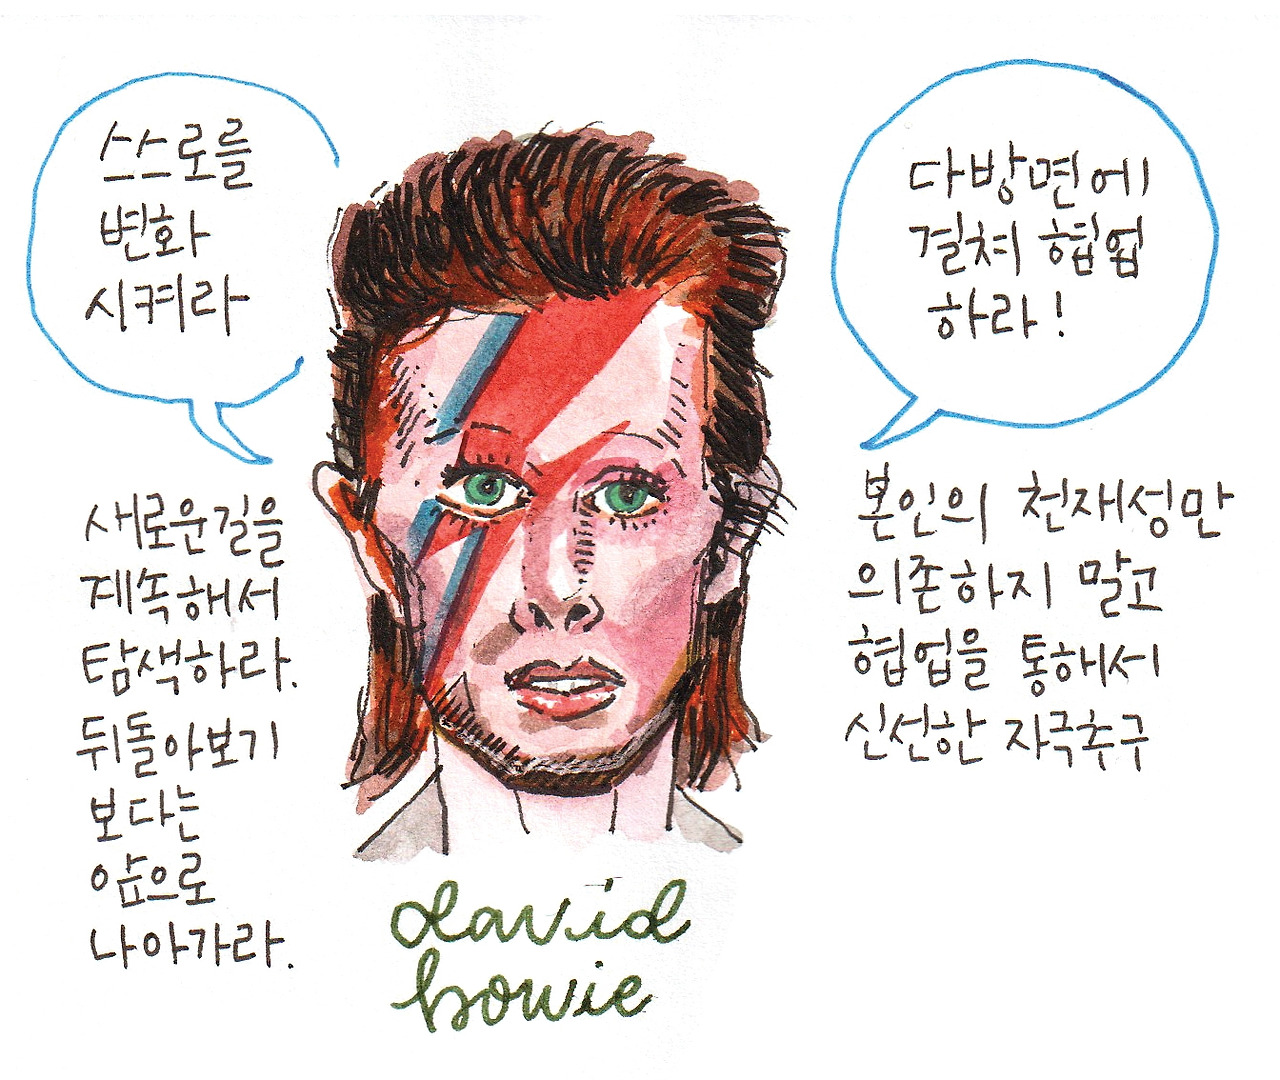 스스로를
변화
시켜라
새로운길을
계속해서
탐색하라.
뒤돌아보기
보다는
앞으로
나아가라.
다방면에
걸쳐 협업
하라!
본인의 천재성만
의존하지 말고
협업을 통해서
신선한 자극추구
david
bowie